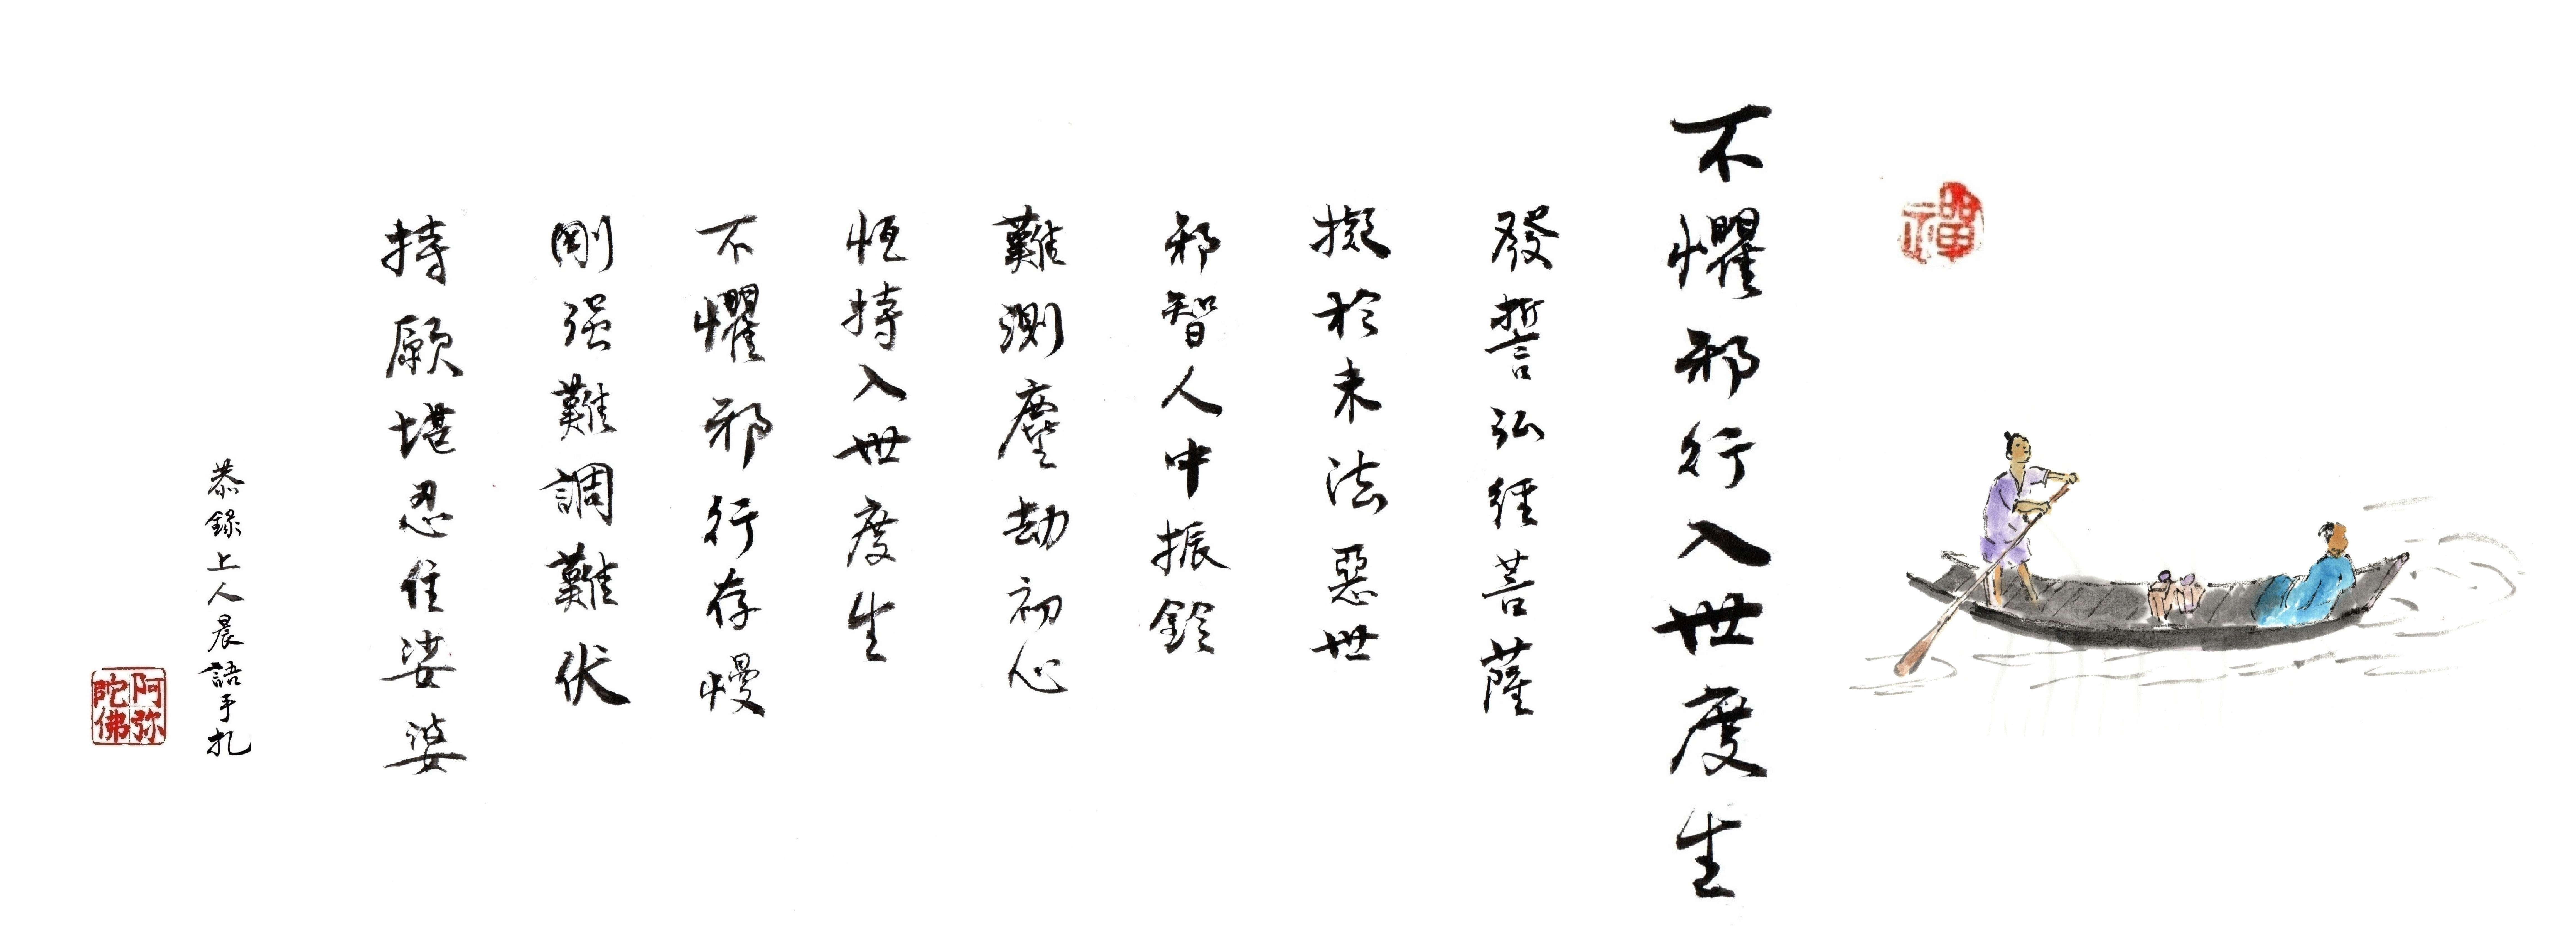 禪
不懼邪行入世度生
發誓弘經菩薩
擬於末法惡世
邪智人中振鈴
難測塵劫初心
恆持入世度生
不懼邪行存慢
剛强難調難伏
持願堪忍住娑婆
恭錄上人晨語手札
阿弥陀佛